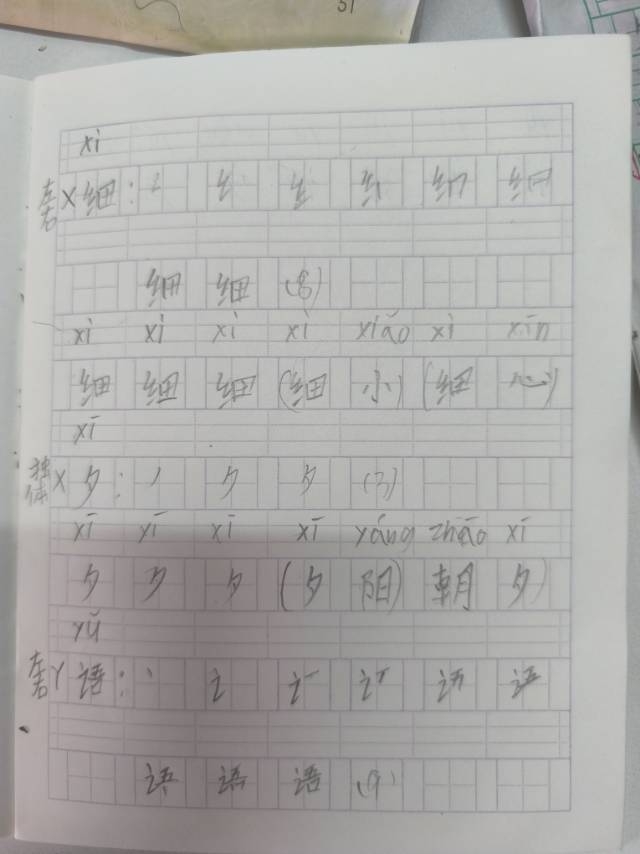 51
xì
左右 X 细: 纟 纟 纟 纟 细 细
细 细 (8)
xì xì xì xì xiǎo xì xīn
细 细 细 (细 小) (细 心)
xī
独体 X 夕: 丿 ク 夕 (3)
xī xī xī xī yáng zhāo xī
夕 夕 夕 (夕 阳) 朝 夕)
yǔ
左右 Y 语: 丶 讠
语 语 语 (9)